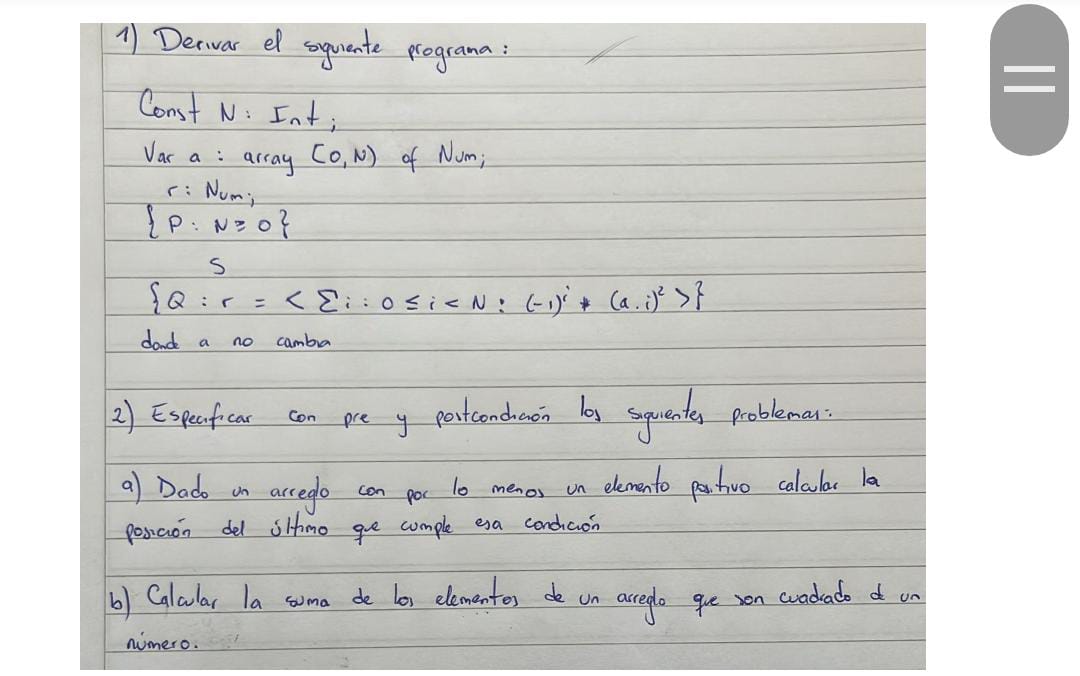 1) Derivar el siguiente programa:
Const N: Int;
Var a : array [0,N) of Num;
r: Num;
{P: N ≥ 0}
S
{Q : r = <∑i : 0 ≤ i < N : (-1)^i * (a.i)² >}
donde a no cambia
2) Especificar con pre y postcondición los siguientes problemas:
a) Dado un arreglo con por lo menos un elemento positivo calcular la
posición del último que cumple esa condición
b) Calcular la suma de los elementos de un arreglo que son cuadrado de un
número.